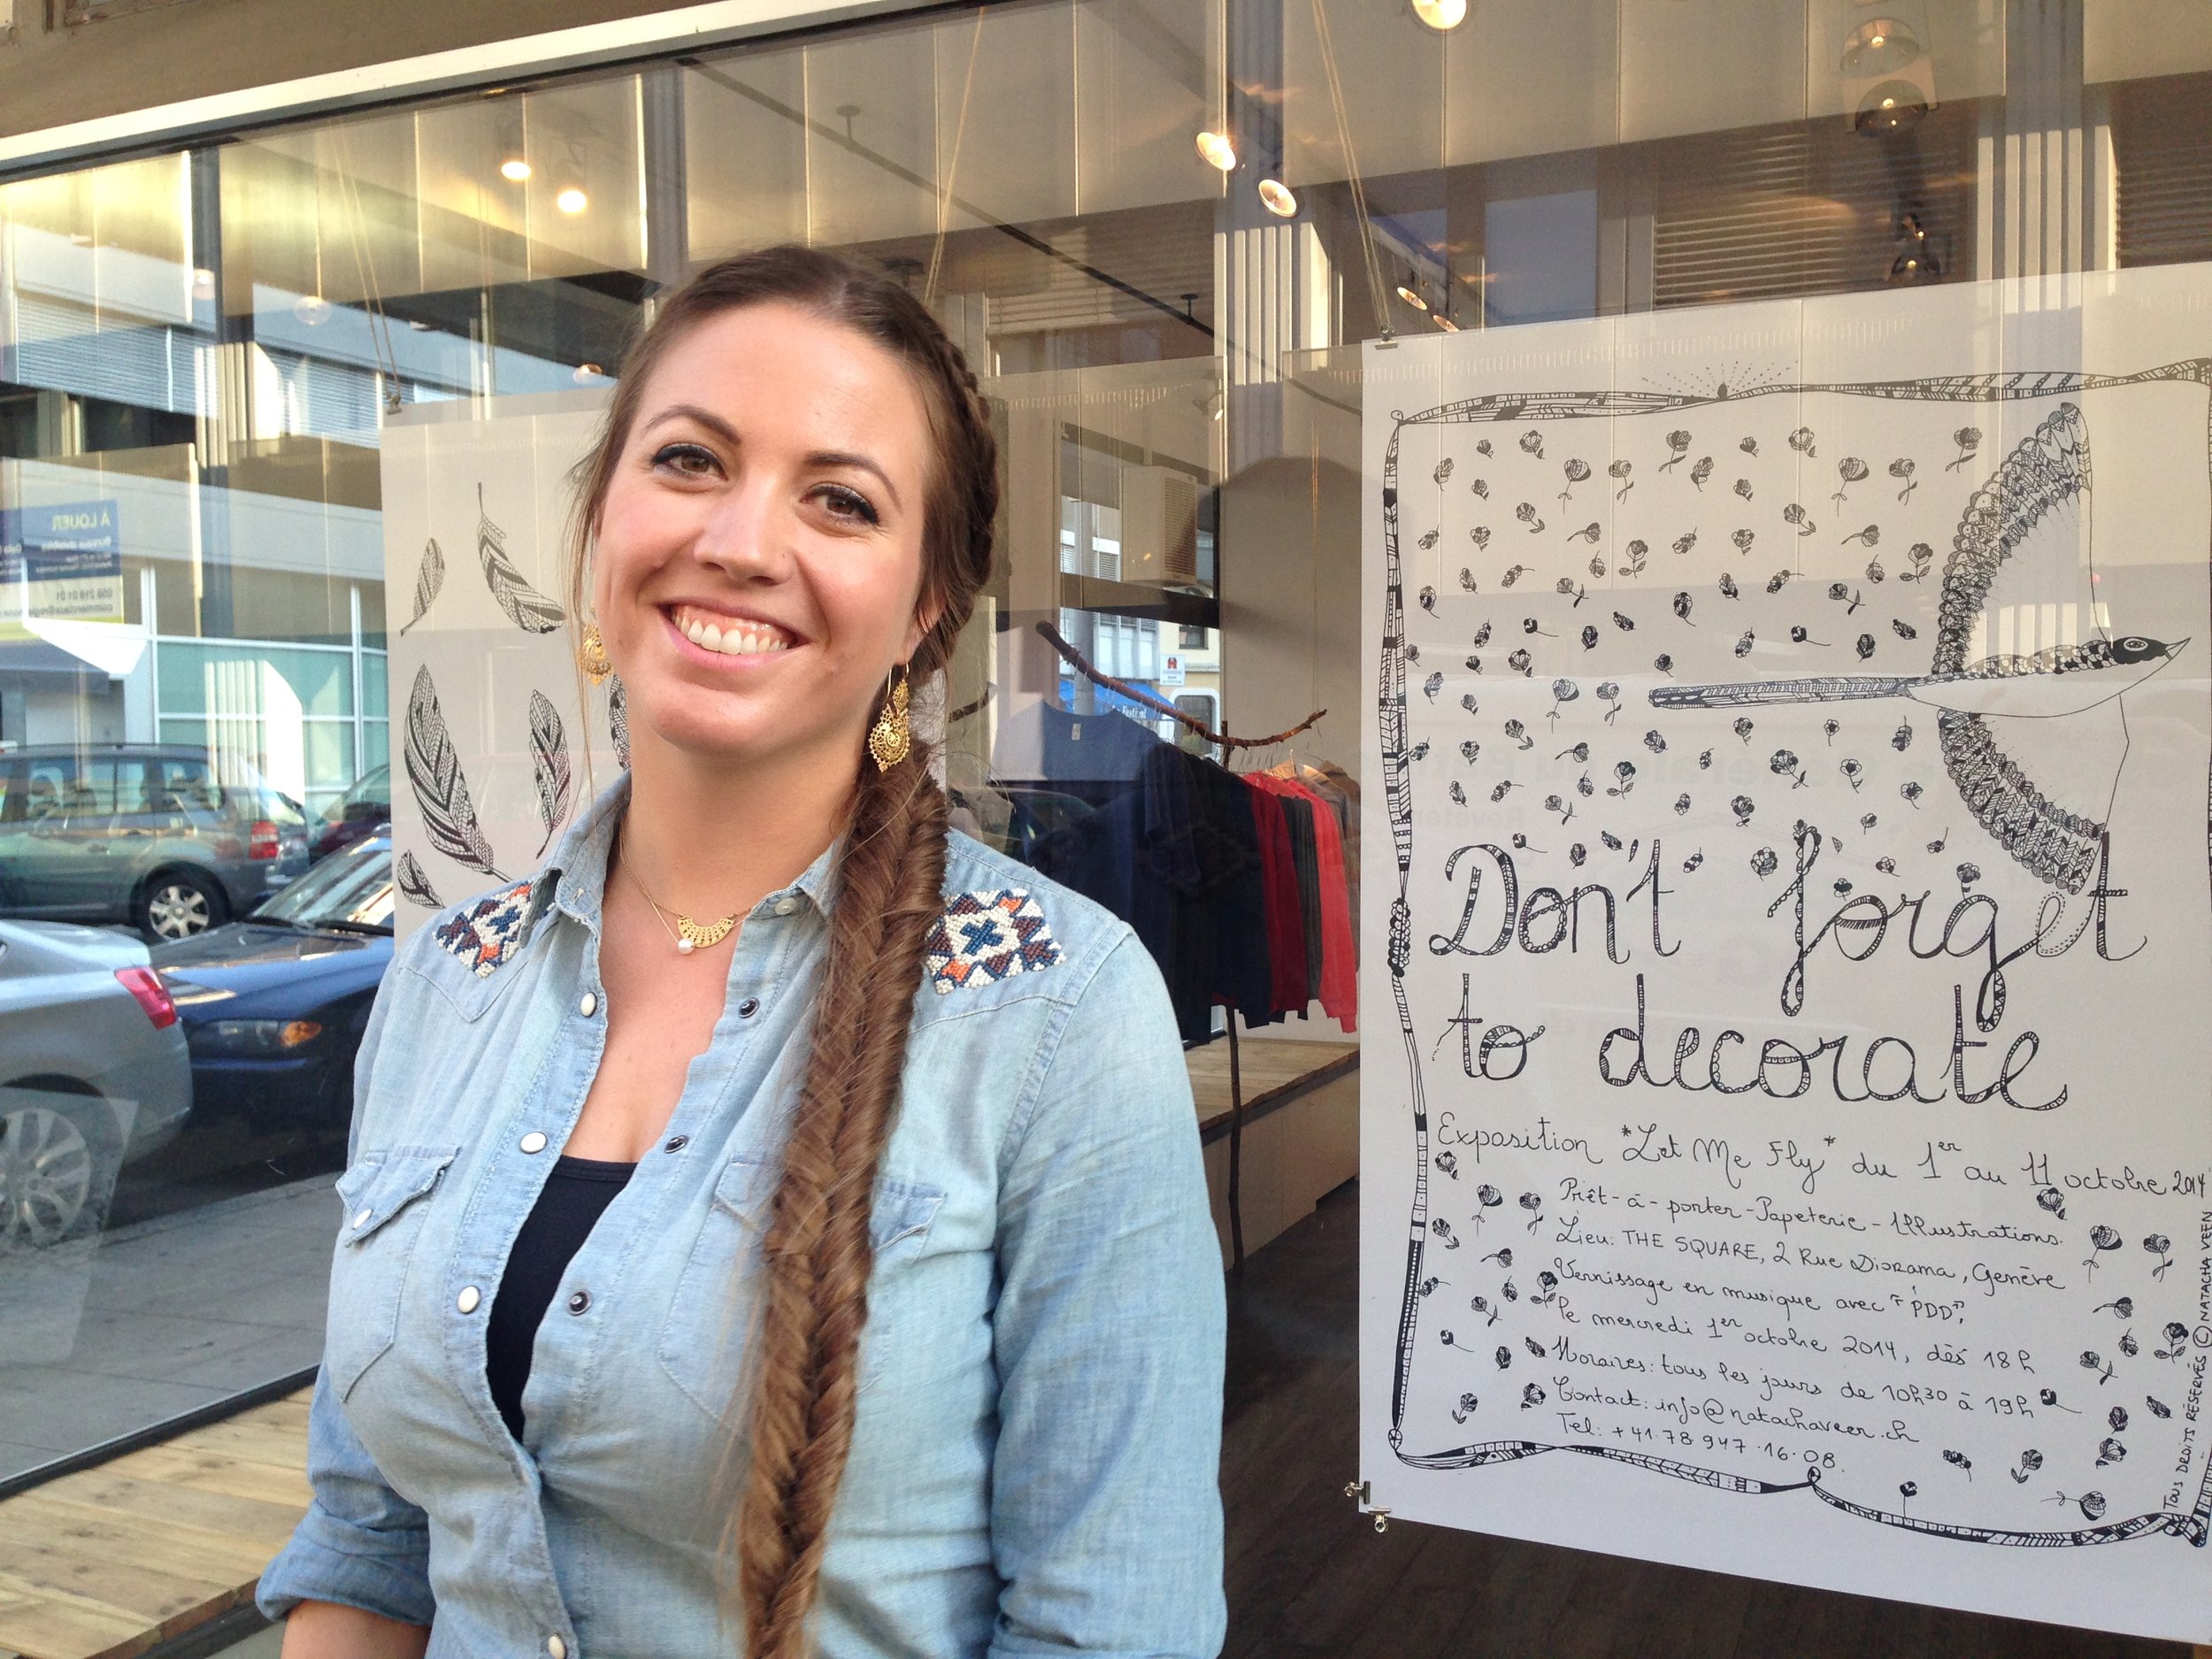 Don't forget
to decorate
Exposition *Let Me Fly* du 1er au 11 octobre 2014
Prêt-à-porter-Papeterie-Illustrations.
Lieu: THE SQUARE, 2 Rue Diorama, Genève
Vernissage en musique avec "PDD",
le mercredi 1er octobre 2014, dès 18h
Horaires: tous les jours de 10h30 à 19h
Contact: info@natachaveen.ch
Tel: +41.78 947.16.08.
TOUS DROITS RÉSERVÉS © NATACHA VEEN
À LOUER